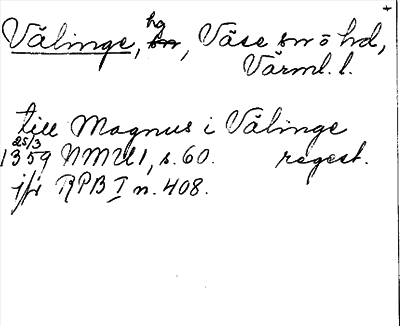 Välinge, hg, Väse sn o hd,
Värml. l.
till Magnus i Välinge
25/3
1359 NMU 1, s. 60. regest.
jfr RPB I n. 408.